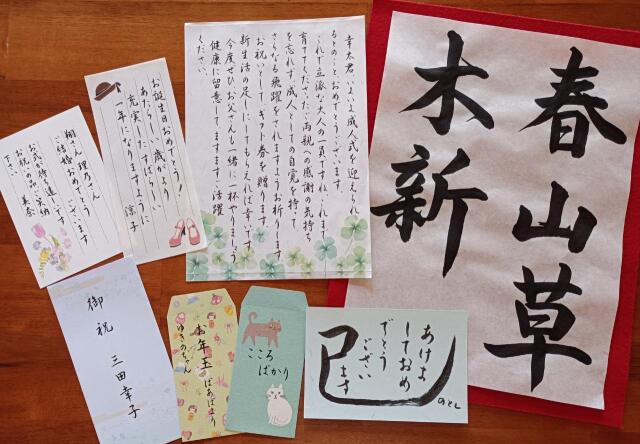 春山草
木新
幸太君、いよいよ成人式を迎えられ
るとのことおめでとうございます。
これで立派な大人の一員ですね。これまで
育ててくださったご両親への感謝の気持ち
を忘れず、成人としての自覚を持って
さらなる飛躍をされますようお祈りします。
お祝いとして、ギフト券を贈ります。
新生活の足しにしてもらえれば幸いです。
今度ぜひお父さんも一緒に一杯やりましょう。
健康に留意してますますご活躍
ください。
お誕生日おめでとう!
あたらしい歳がより
充実したすばらしい
一年になりますように
涼子
翔さん 理乃さん
ご結婚おめでとうございます
お式が待ち遠しいです
お祝いの品ご笑納
下さい 美奈
御祝
三田幸子
お年玉 ばあばより
ゆきのちゃん
こころ
ばかり
あけま
しておめ
でとう
ござい
ます
巳
のとし